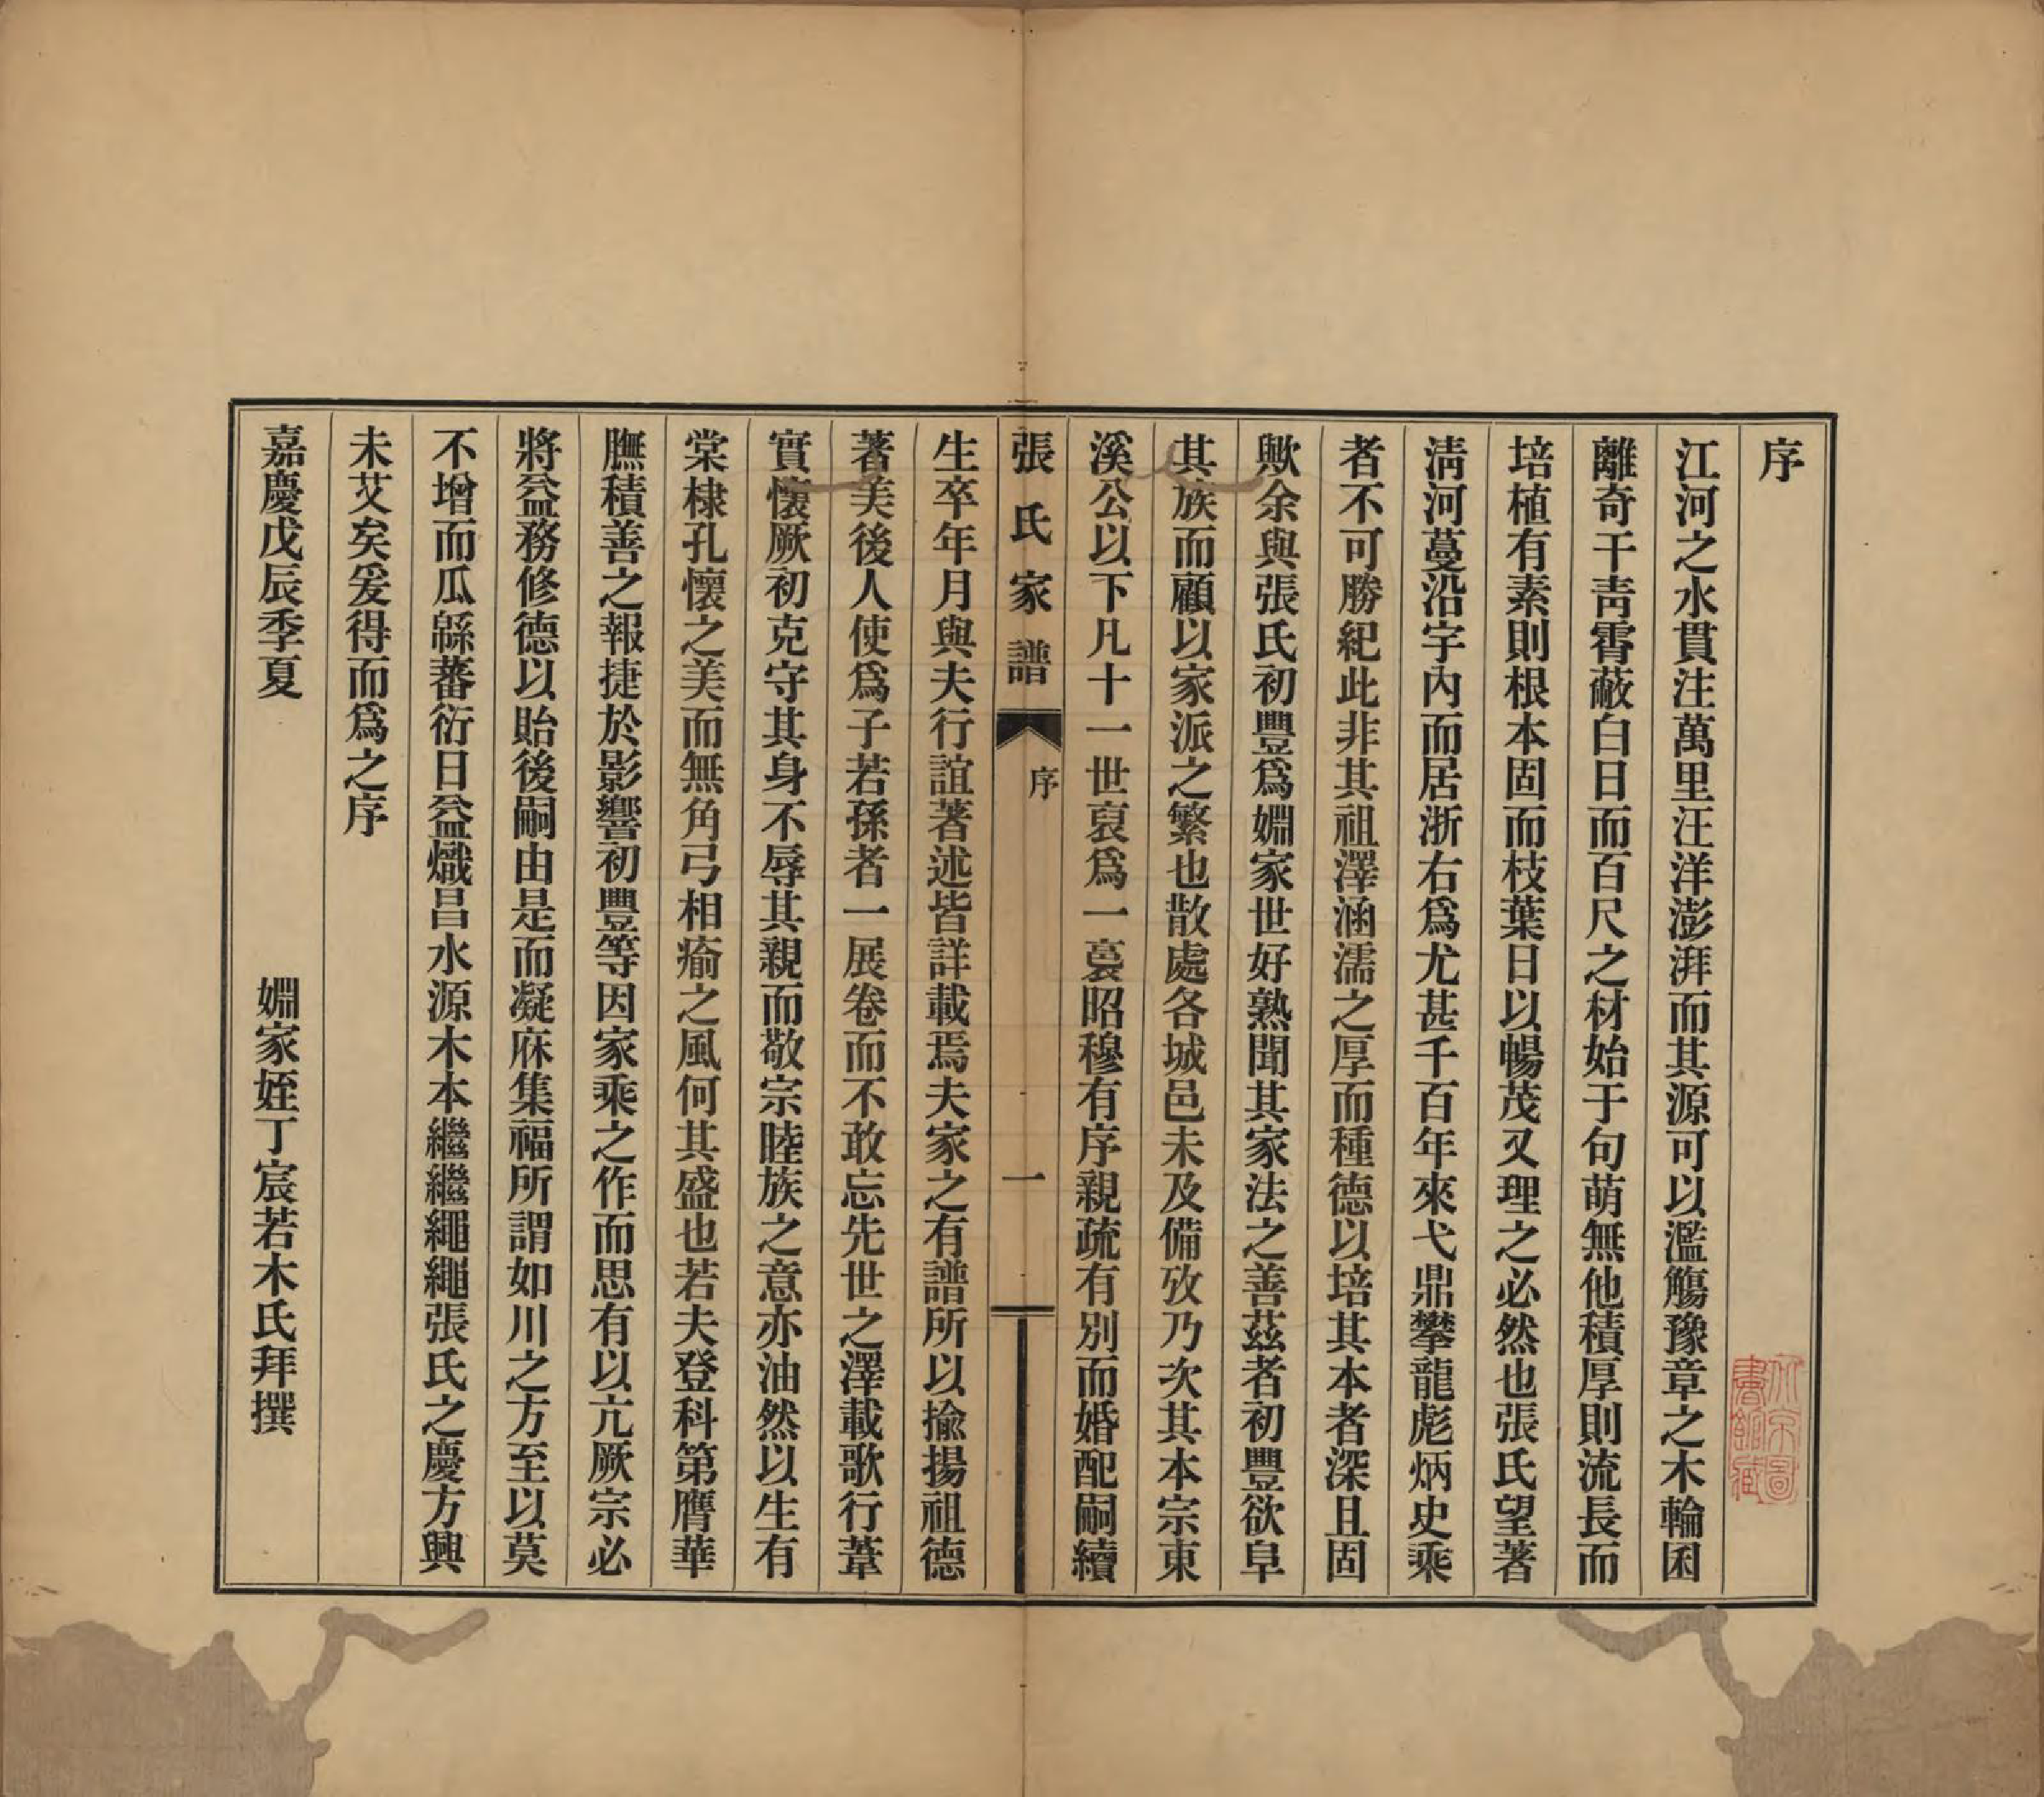 序
江河之水貫注萬里汪洋澎湃而其源可以濫觴豫章之木輪囷
離奇干靑霄蔽白日而百尺之材始于句萌無他積厚則流長而
培植有素則根本固而枝葉日以暢茂又理之必然也張氏望著
淸河蔓沿宇內而居浙右爲尤甚千百年來弋鼎攀龍彪炳史乘
者不可勝紀此非其祖澤涵濡之厚而種德以培其本者深且固
歟余與張氏初豐爲婣家世好熟聞其家法之善茲者初豐欲阜
其族而顧以家派之繁也散處各城邑未及備攷乃次其本宗東
溪公以下凡十一世裒爲一袠昭穆有序親疏有別而婚配嗣續
張氏家譜
序
一
生卒年月與夫行誼著述皆詳載焉夫家之有譜所以揄揚祖德
著美後人使爲子若孫者一展卷而不敢忘先世之澤載歌行葦
實懷厥初克守其身不辱其親而敬宗睦族之意亦油然以生有
棠棣孔懷之美而無角弓相瘉之風何其盛也若夫登科第膺華
膴積善之報捷於影響初豐等因家乘之作而思有以亢厥宗必
將益務修德以貽後嗣由是而凝庥集福所謂如川之方至以莫
不增而瓜緜蕃衍日益熾昌水源木本繼繼繩繩張氏之慶方興
未艾矣爰得而爲之序
嘉慶戊辰季夏
婣家姪丁宸若木氏拜撰
北京圖
書館藏